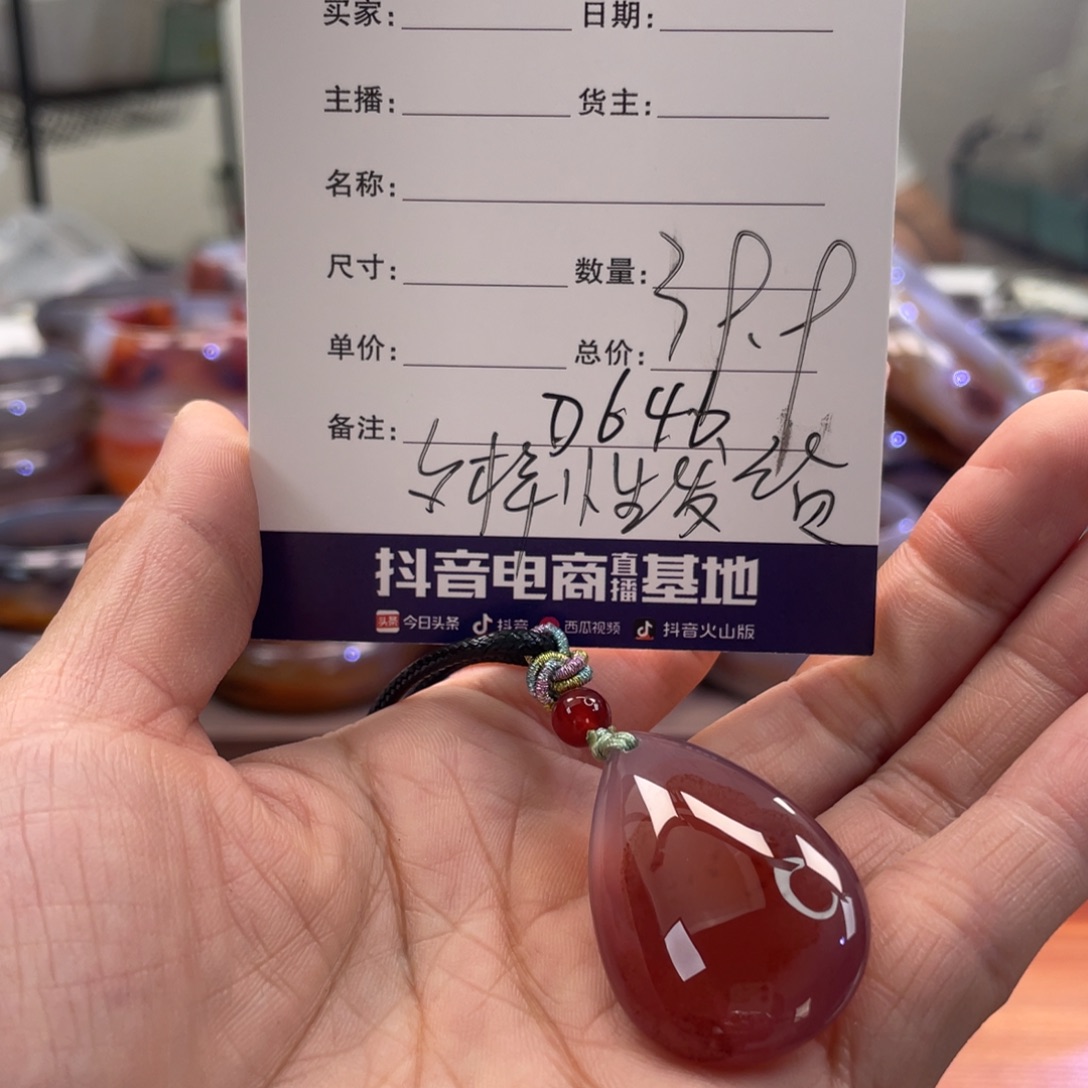 买家: 日期:
主播: 货主:
名称:
尺寸: 数量:
单价: 总价: 39.9
备注: D646
今择性发货
抖音电商直播基地
头条 今日头条 抖音 西瓜视频 抖音火山版